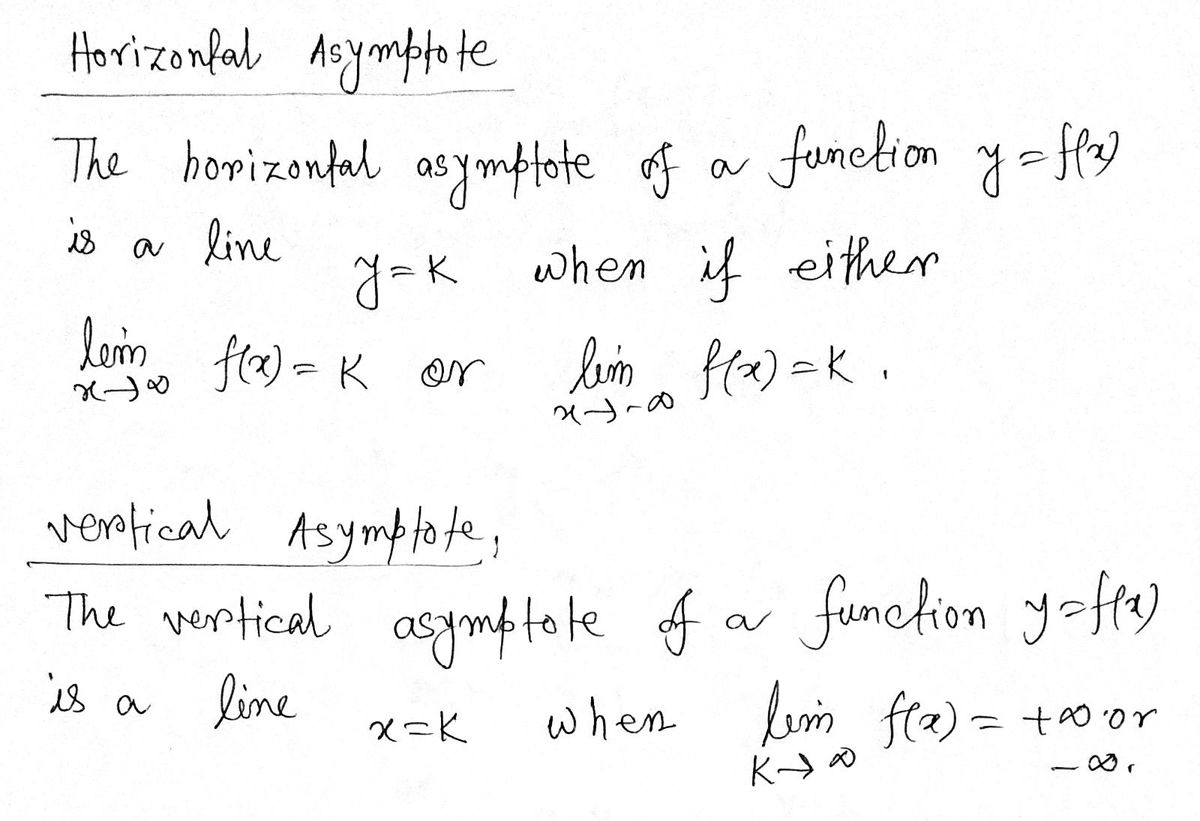 Horizontal Asymptote
The horizontal asymptote of a function y = f(x)
is a line y = K when if either
lim x→∞ f(x) = K or lim x→-∞ f(x) = K .
vertical Asymptote,
The vertical asymptote of a function y = f(x)
is a line x = K when lim K→∞ f(x) = +∞ or -∞.